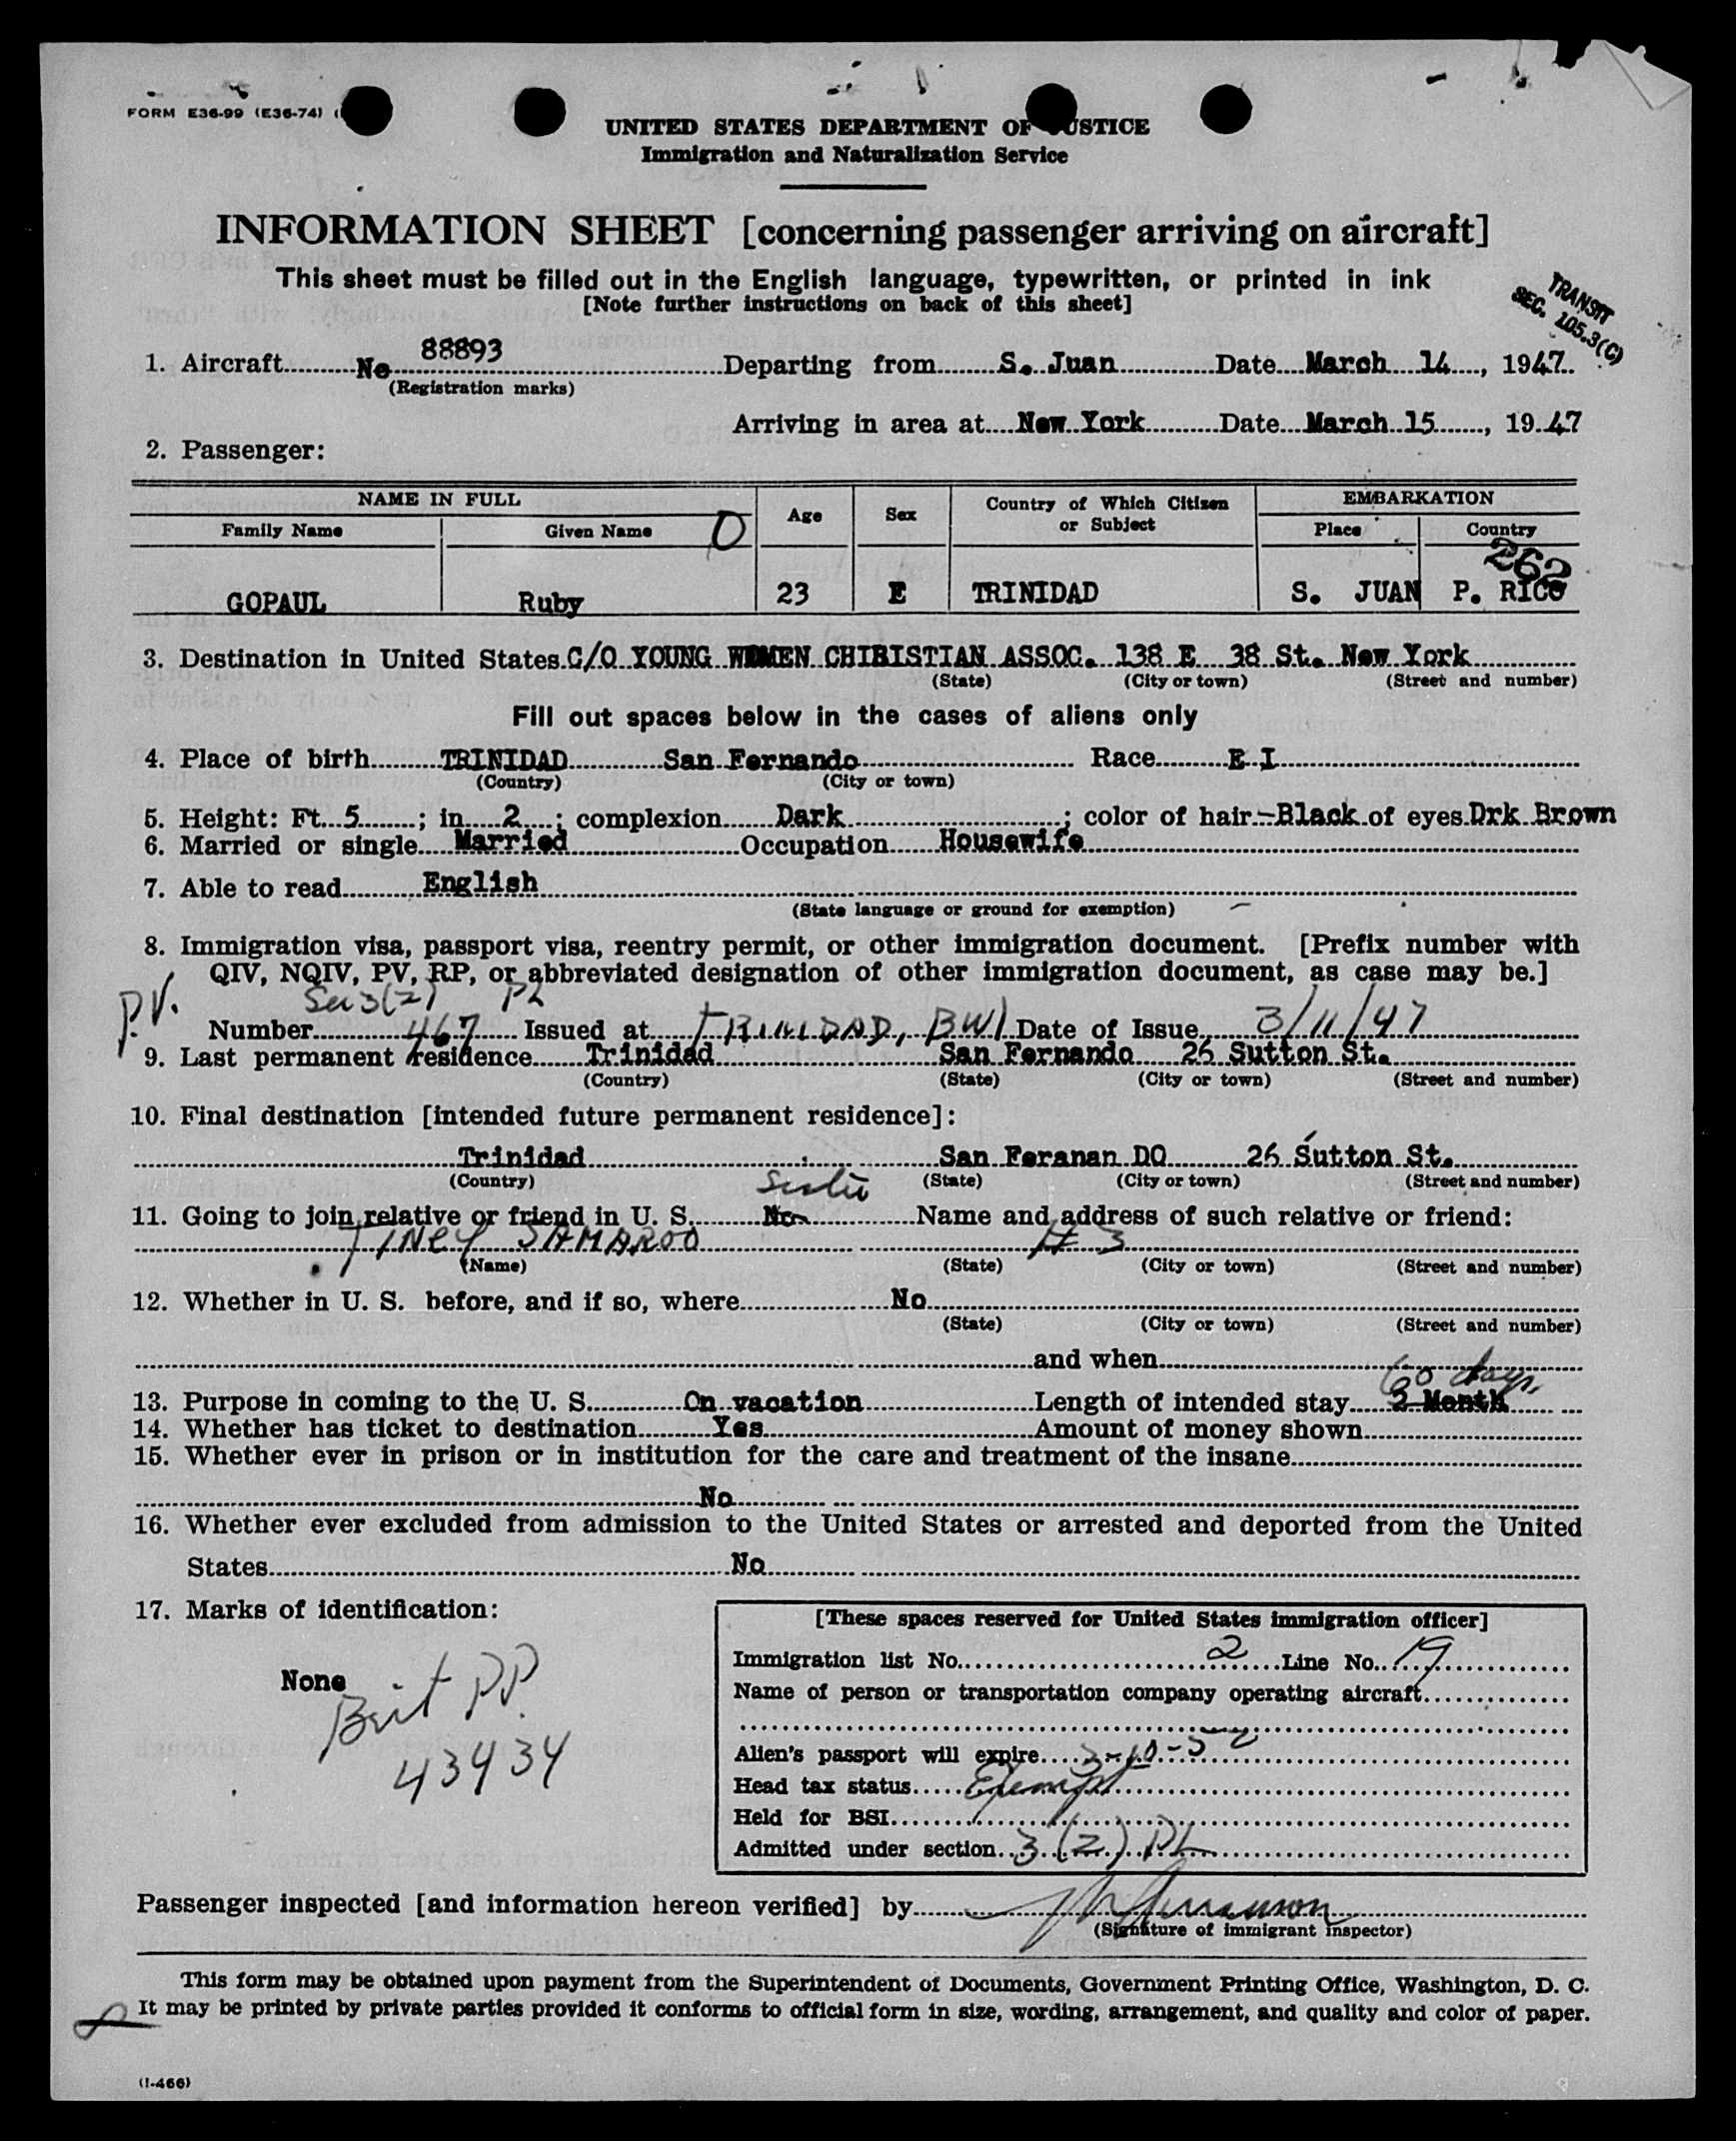 FORM E36-99 (E36-74) (
UNITED STATES DEPARTMENT OF JUSTICE
Immigration and Naturalization Service
INFORMATION SHEET [concerning passenger arriving on aircraft]
This sheet must be filled out in the English language, typewritten, or printed in ink
[Note further instructions on back of this sheet]
TRANSIT
SEC. 105.3(C)
1. Aircraft No 88893 Departing from S. Juan Date March 14, 1947
(Registration marks)
Arriving in area at New York Date March 15, 1947
2. Passenger:
NAME IN FULL Age Sex Country of Which Citizen or Subject EMBARKATION
Family Name Given Name O Place Country
262
GOPAUL Ruby 23 E TRINIDAD S. JUAN P. RICO
3. Destination in United States C/O YOUNG WOMEN CHIRISTIAN ASSOC. 138 E 38 St. New York
(State) (City or town) (Street and number)
Fill out spaces below in the cases of aliens only
4. Place of birth TRINIDAD San Fernando Race E I
(Country) (City or town)
5. Height: Ft. 5; in. 2; complexion Dark; color of hair-Black of eyes Drk Brown
6. Married or single Married Occupation Housewife
7. Able to read English
(State language or ground for exemption)
8. Immigration visa, passport visa, reentry permit, or other immigration document. [Prefix number with
QIV, NQIV, PV, RP, or abbreviated designation of other immigration document, as case may be.]
P.V. Sec 3(2) PL
Number 467 Issued at TRINIDAD, BWI Date of Issue 3/11/47
9. Last permanent residence Trinidad San Fernando 26 Sutton St.
(Country) (State) (City or town) (Street and number)
10. Final destination [intended future permanent residence]:
Trinidad San Feranan DO 26 Sutton St.
(Country) (State) (City or town) (Street and number)
Sister
11. Going to join relative or friend in U. S. No Name and address of such relative or friend:
TINEY SAMAROO # 3
(Name) (State) (City or town) (Street and number)
12. Whether in U. S. before, and if so, where No
(State) (City or town) (Street and number)
and when
60 days
13. Purpose in coming to the U. S. On vacation Length of intended stay 2 Month
14. Whether has ticket to destination Yes Amount of money shown
15. Whether ever in prison or in institution for the care and treatment of the insane
No
16. Whether ever excluded from admission to the United States or arrested and deported from the United
States No
17. Marks of identification:
None
Brit PP.
43434
[These spaces reserved for United States immigration officer]
Immigration list No. 2 Line No. 19
Name of person or transportation company operating aircraft
Alien's passport will expire 3-10-52
Head tax status Exempt
Held for BSI
Admitted under section 3 (2) PL
Passenger inspected [and information hereon verified] by
(Signature of immigrant inspector)
This form may be obtained upon payment from the Superintendent of Documents, Government Printing Office, Washington, D. C.
It may be printed by private parties provided it conforms to official form in size, wording, arrangement, and quality and color of paper.
(I-466)